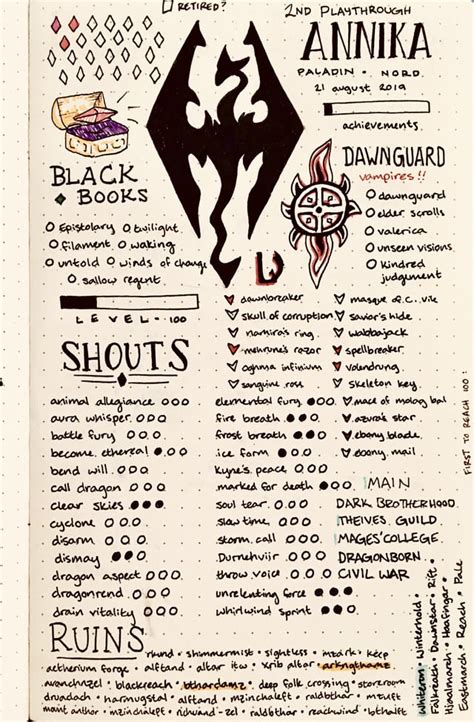 RETIRED?
2ND PLAYTHROUGH
ANNIKA
PALADIN • NORD
21 august 2019
achievements
BLACK
BOOKS
epistolary twilight
filament waking
untold winds of change
sallow regent
DAWNGUARD
vampires!!
dawnguard
elder scrolls
valerica
unseen visions
kindred
judgement
LEVEL - 100
dawnbreaker
skull of corruption
namira's ring
mehrune's razor
oghma infinium
sanguine rose
masque of c. vile
savior's hide
wabbajack
spellbreaker
volendrung
skeleton key
mace of molag bal
azura's star
ebony blade
ebony mail
SHOUTS
animal allegiance
aura whisper
battle fury
become ethereal
bend will
call dragon
clear skies
cyclone
disarm
dismay
dragon aspect
dragonrend
drain vitality
elemental fury
fire breath
frost breath
ice form
kyne's peace
marked for death
soul tear
slow time
storm call
Durnehviir
throw voice
unrelenting force
whirlwind sprint
MAIN
DARK BROTHERHOOD
THEIVES GUILD
MAGES' COLLEGE
DRAGONBORN
CIVIL WAR
FIRST TO REACH 100:
Whiterun • Winterhold • Rift •
Falkreath • Dawnstar •
Hjaalmarch • Haafingar •
Eastmarch • Reach • Pale
RUINS
rkund • shimmermist • sightless • mzark • keep
aetherium forge • alftand • altar • xrib altar • arkngthamz
avanchnzel • blackreach • bthardamz • deep folk crossing • storeroom
druadach • harmugstal • alftand • mzinchaleft • raldbthar • mzulft
mzinchaleft • raldbthar nchuand-zel